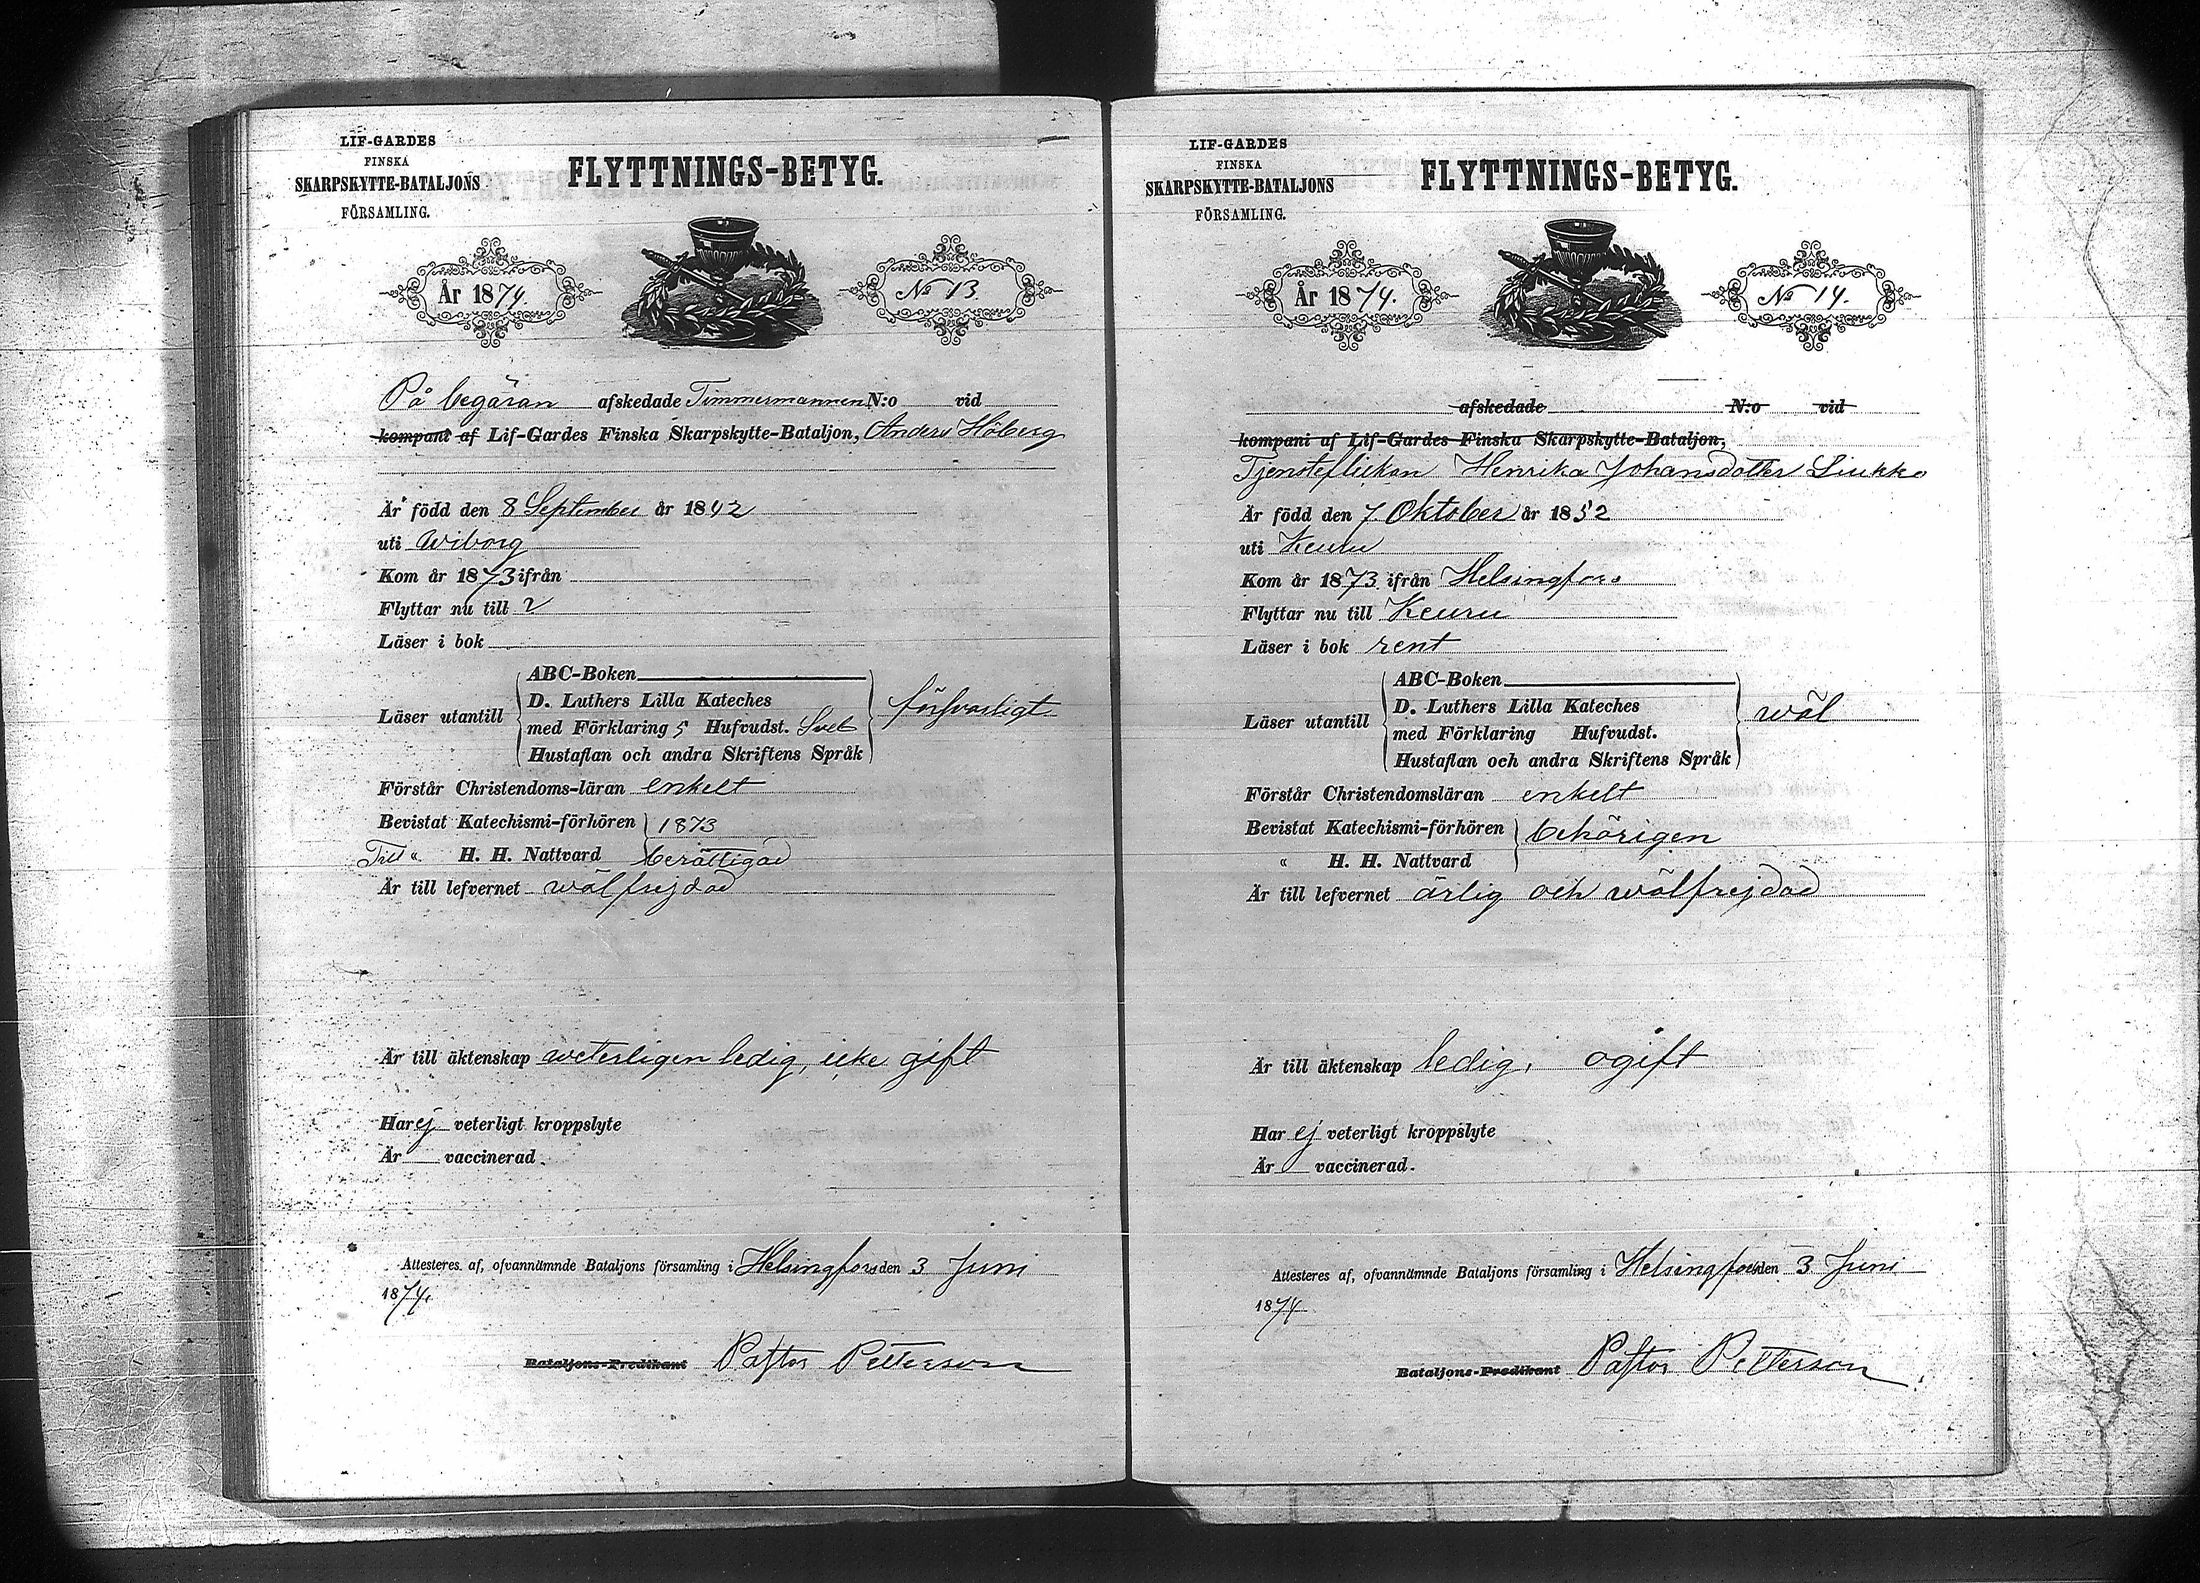 LIF-GARDES
FINSKA
SKARPSKYTTE-BATALJONS
FÖRSAMLING.
FLYTTNINGS-BETYG.
År 1874.
No 13
På begäran afskedade Timmermannen N:o vid
kompani af Lif-Gardes Finska Skarpskytte-Bataljon, Anders Höberg
Är född den 8 September år 1842
uti Wiborg
Kom år 1873 ifrån
Flyttar nu till
Läser i bok
Läser utantill
ABC-Boken
D. Luthers Lilla Kateches
med Förklaring 5 Hufvudst.
Hustaflan och andra Skriftens Språk
försvarligt
Förstår Christendoms-läran enkelt
Bevistat Katechismi-förhören 1873
Till " H. H. Nattvard berättigad
Är till lefvernet wälfrejdad
Är till äktenskap weterligen ledig, icke gift
Har ej veterligt kroppslyte
Är vaccinerad.
Attesteres af, ofvannämnde Bataljons församling i Helsingfors den 3 Juni
1874.
Bataljons-Predikant Pastor Petterson
LIF-GARDES
FINSKA
SKARPSKYTTE-BATALJONS
FÖRSAMLING.
FLYTTNINGS-BETYG.
År 1874.
No 14.
afskedade N:o vid
kompani af Lif-Gardes Finska Skarpskytte-Bataljon,
Tjensteflickan Henrika Johansdotter Liukko
Är född den 7 Oktober år 1852
uti Keuru
Kom år 1873 ifrån Helsingfors
Flyttar nu till Keuru
Läser i bok rent
Läser utantill
ABC-Boken
D. Luthers Lilla Kateches
med Förklaring Hufvudst.
Hustaflan och andra Skriftens Språk
wäl
Förstår Christendomsläran enkelt
Bevistat Katechismi-förhören
" H. H. Nattvard
behörigen
Är till lefvernet ärlig och wälfrejdad
Är till äktenskap ledig, ogift
Har ej veterligt kroppslyte
Är vaccinerad.
Attesteres af, ofvannämnde Bataljons församling i Helsingfors den 3 Juni
1874
Bataljons-Predikant Pastor Petterson